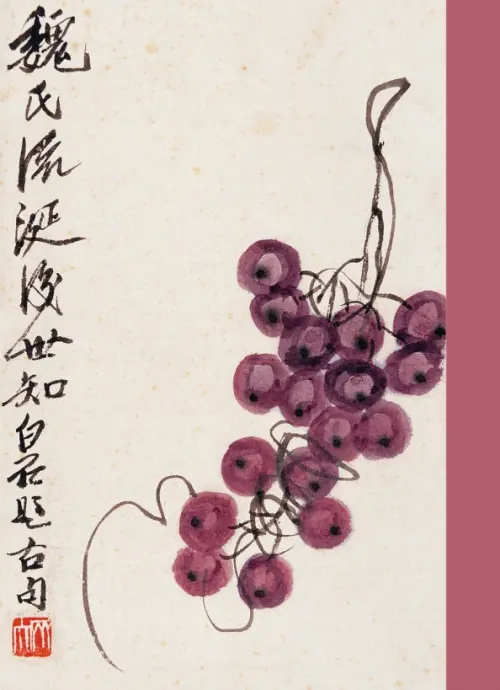 魏氏流涎后世知白石题古句